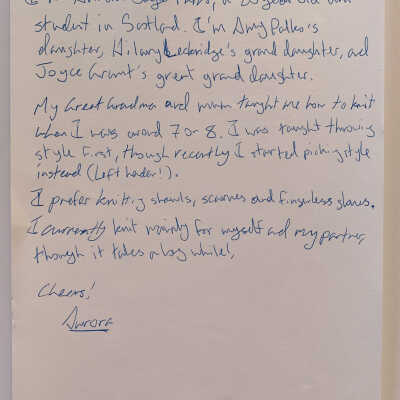 student in Scotland. I'm Amy Palko's
daughter, Hilary Leckridge's grand daughter, and
Joyce Grant's great grand daughter.
My Great Grandma and mum taught me how to knit
when I was around 7 or 8. I was taught throwing
style first, though recently I started picking style
instead (left hander!).
I prefer knitting shawls, scarves and fingerless gloves.
I currently knit mainly for myself and my partner,
though it takes a long while!
Cheers!
Aurora